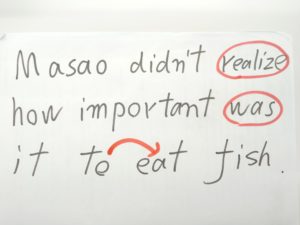 Masao didn't realize
how important was
it to eat fish.